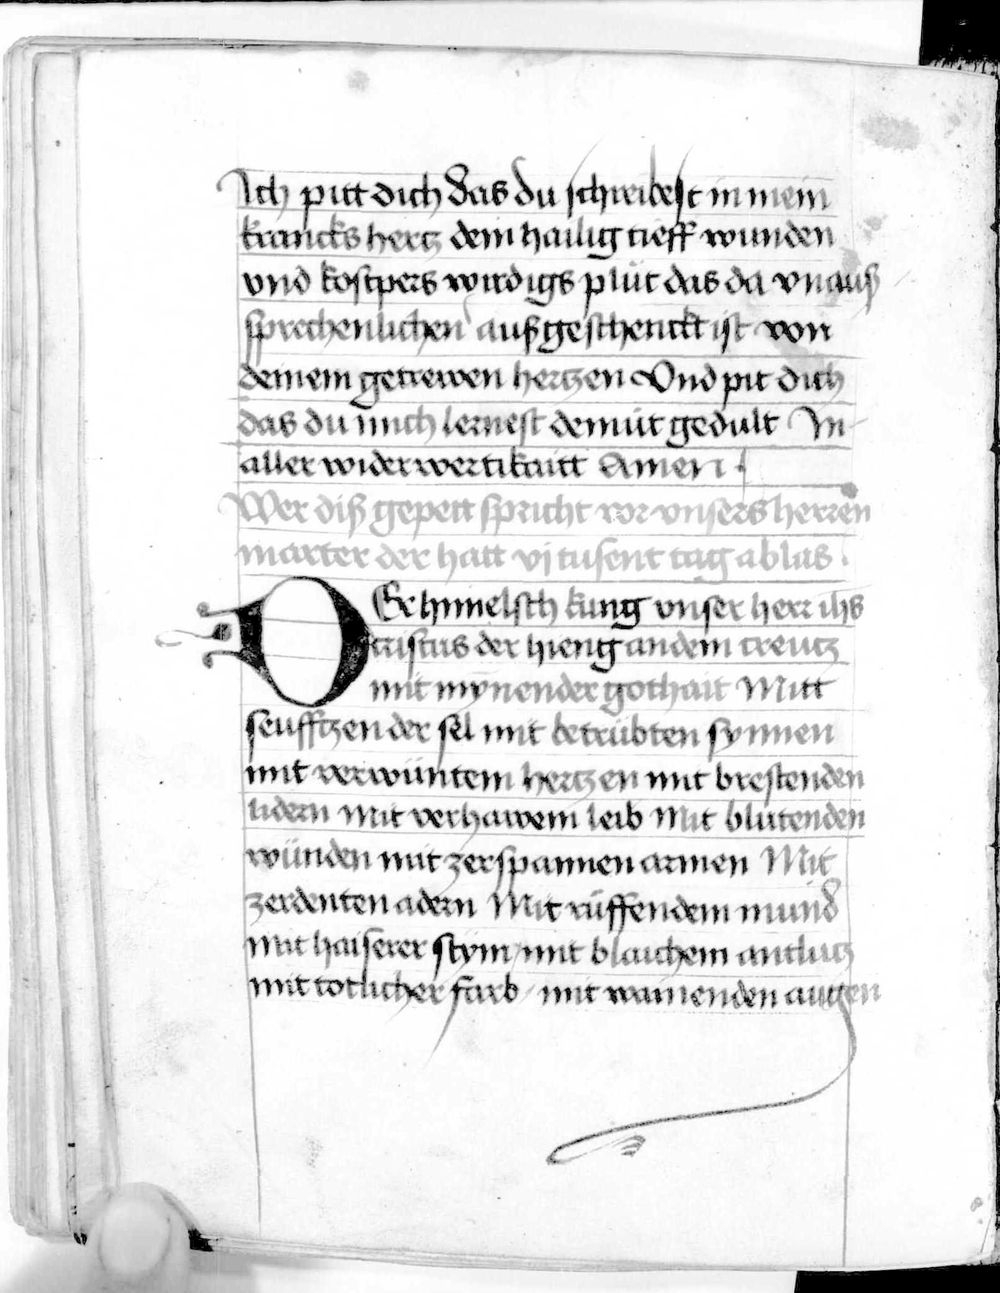 Ich pitt dich das du schreibest in mein
krancks hertz dein hailig tieff wunden
vnd kostpers wirdigs plůt das da vnauß
sprechenlichen außgeschenckt ist von
deinem getrewen hertzen Vnd pit dich
das du mich lernest demůt gedult In
aller widerwertikaitt Amen
Wer diß gepett spricht vor vnsers herren
marter der hatt vj tusent tag ablas .
DEr himelsch kung vnser herr ihs
cristus der hieng an dem creutz
mit mynender gothait Mitt
seufftzen der sel mit betrübten synnen
mit verwůntem hertzen mit brestenden
lidern Mit verhawem leib Mit blutenden
wůnden mit zerspannen armen Mit
zerdenten adern Mit růffendem mund
Mit haiserer stým mit blaichem antlutz
mit totlicher farb mit wainenden augen